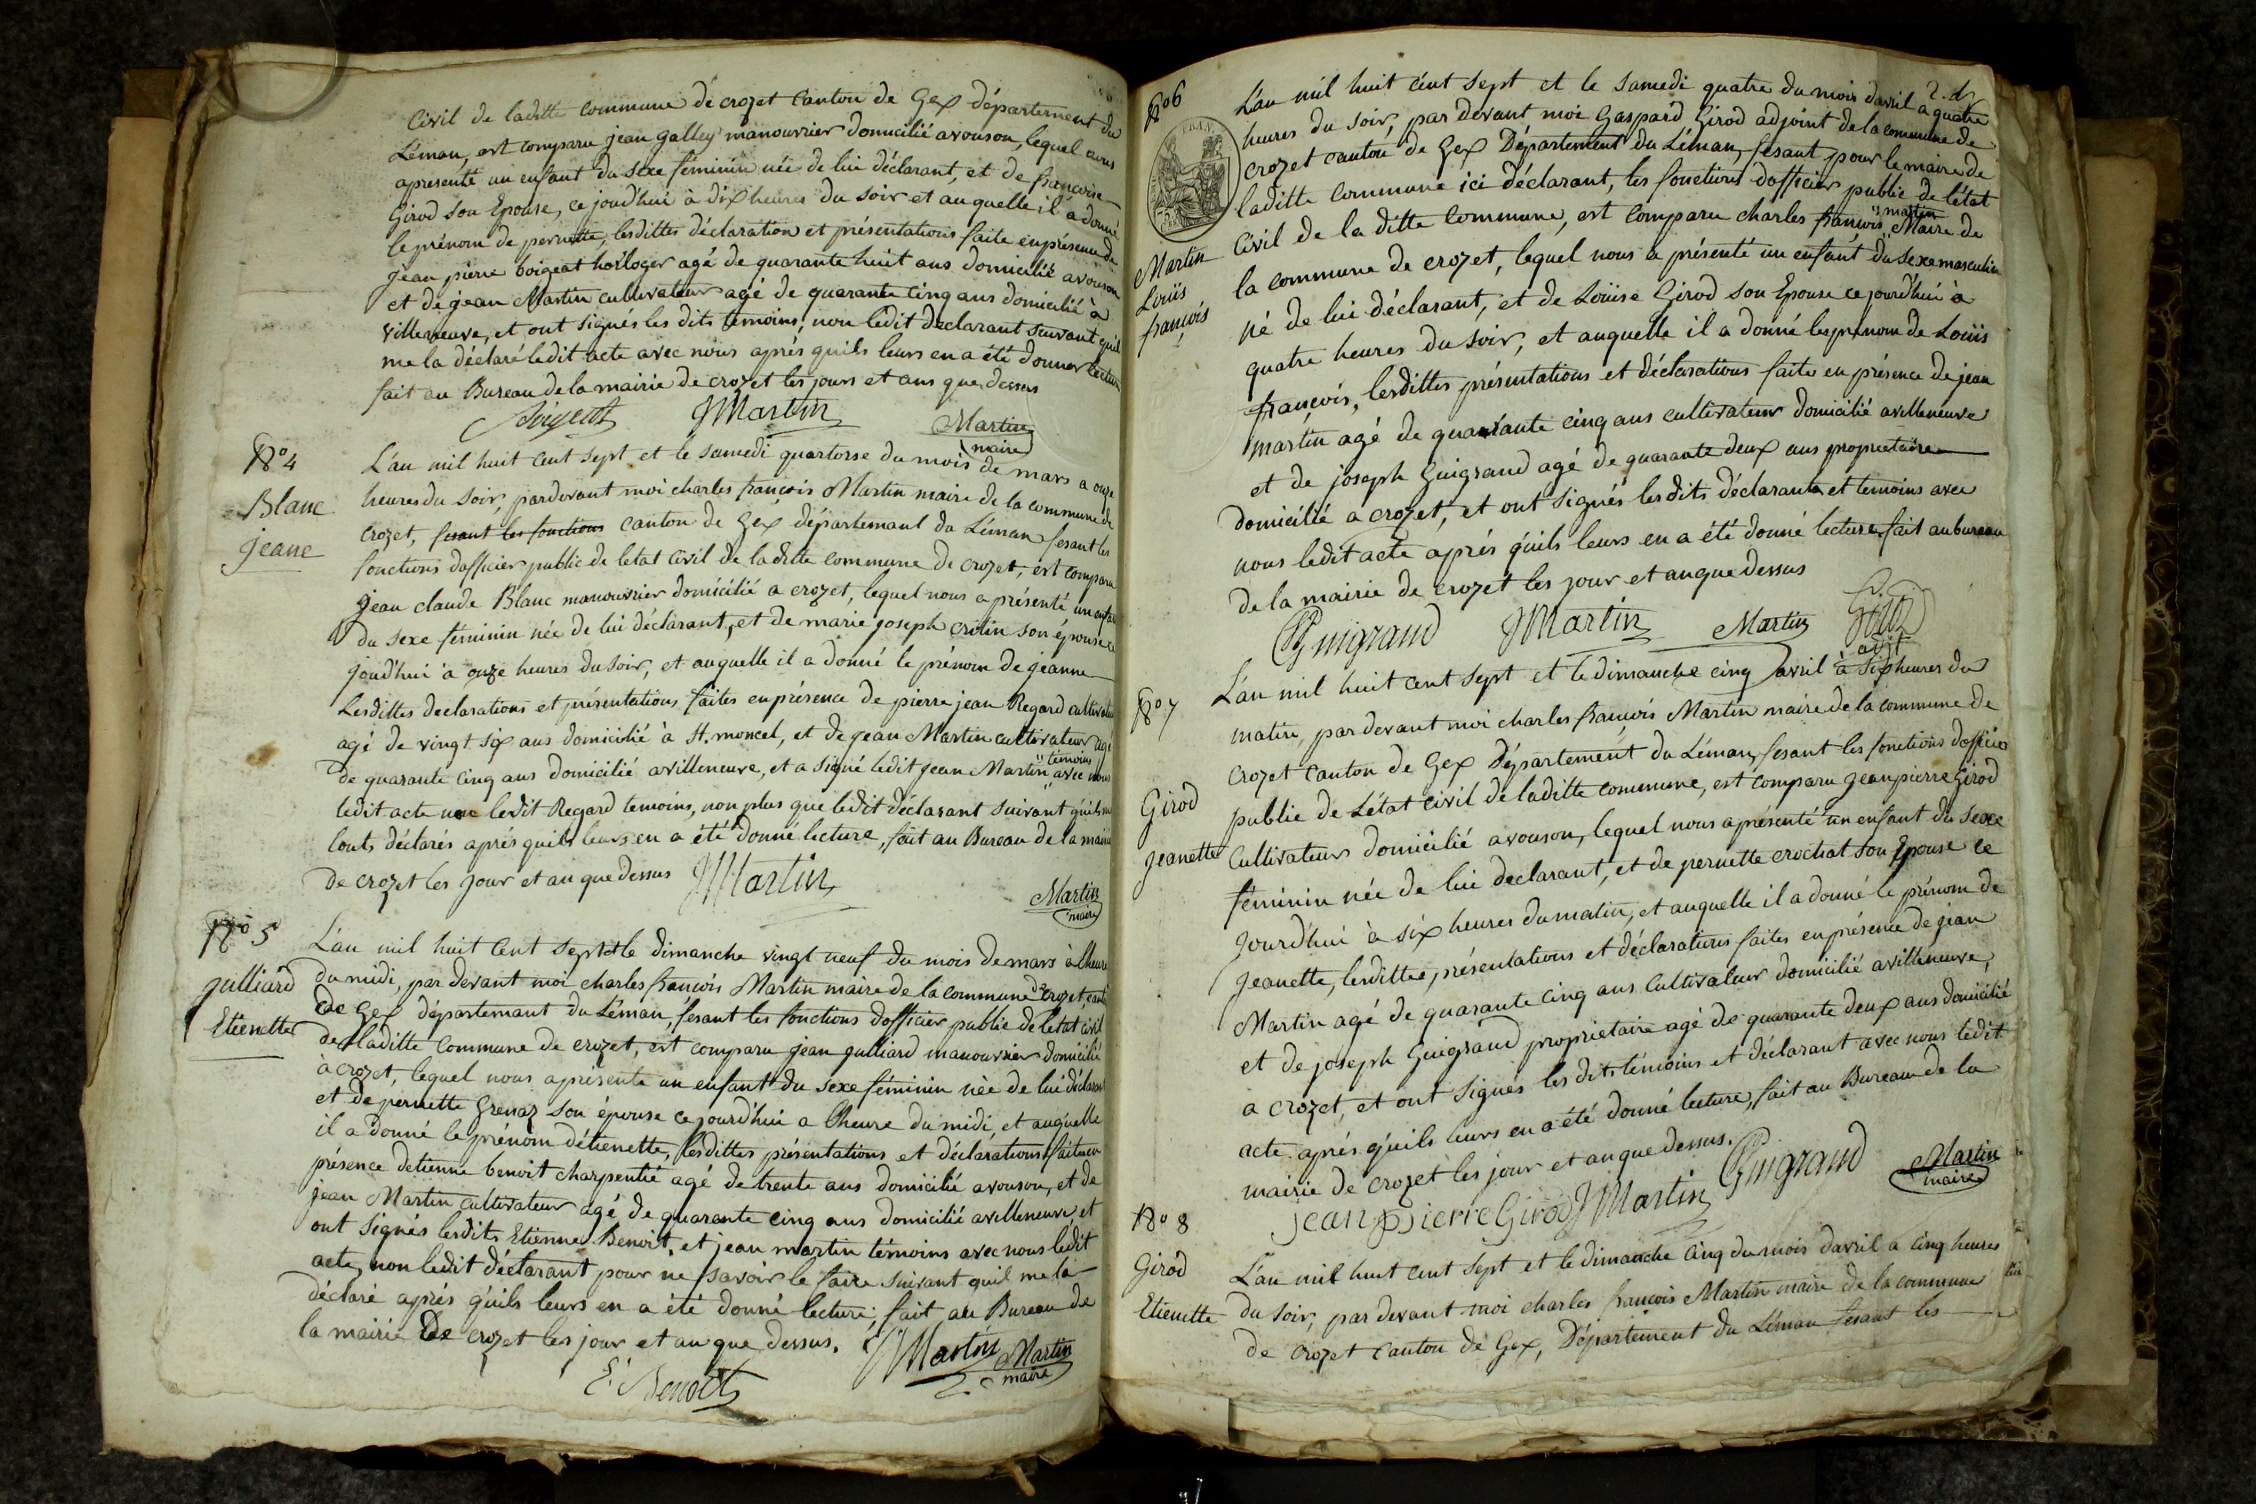 Civil de laditte commune de crozet canton de Gex département du
Léman, est comparu jean galley manouvrier domicilié avouson, lequel nous
apresenté un enfant du sexe féminin née de lui déclarant, et de françoise
Girod son Epouse, ce jourd'hui à dix heures du soir et auquelle il a donné
le prénom de pernette, lesdittes déclaration et présentations faite en présence de
jean pierre boigeat horloger agé de quarante huit ans domicilié avouson
et de jean Martin cultivateur agé de quarante cinq ans domicilié à
villeneuve, et ont signés les dits temoins, non ledit declarant suivant quil
me la déclaré ledit acte avec nous aprés quils leurs en a été donner lecture
fait au Bureau de la mairie de crozet les jours et ans que dessus
Boigeat JMartin Martin
maire
No 4
Blanc
jeane
L'an mil huit cent sept et le samedi quartorse du mois de mars a onze
heures du soir, pardevant moi charles françois Martin maire de la commune de
crozet, fesant les fonctions canton de Gex département du Léman fesant les
fonctions dofficier public de letat civil de laditte commune de crozet, est comparu
jean claude Blanc manouvrier domicilié a crozet, lequel nous a présenté un enfant
du sexe féminin née de lui déclarant, et de marie joseph crotin son épouse ce
jourd'hui à onze heures du soir, et auquelle il a donné le prénom de jeanne
Lesdittes declarations et présentations faites en présence de pierre jean Regard cultivateur
agé de vingt six ans domicilié à St. moncel, et de jean Martin cultivateur agé
de quarante cinq ans domicilié avilleneuve, et a signé ledit jean Martin temoins avec nous
ledit acte non ledit Regard temoins, non plus que ledit déclarant suivant quils me
lout déclarés aprés quils leurs en a été donné lecture, fait au Bureau de la mairie
de crozet les jour et an que dessus JMartin
Martin
maire
No 5
julliard
Etienette
L'an mil huit cent sept et le dimanche vingt neuf du mois de mars à lheure
du midi, par devant moi charles françois Martin maire de la commune de crozet, canton
de Gex département du Léman, fesant les fonctions dofficier public de letat civil
de laditte commune de crozet, est comparu jean julliard manouvrier domicilié
à crozet, lequel nous apresenté un enfant du sexe féminin née de lui déclarant
et de pernette Grenaz son épouse ce jourd'hui a lheure du midi, et auquelle
il a donné le prénom détienette, lesdittes présentations et déclarations faites en
présence detienne benoit charpentié agé de trente ans domicilié avouson, et de
jean Martin cultivateur agé de quarante cinq ans domicilié avilleneuve, et
ont signés lesdits Etienne Benoit, et jean martin témoins avec nous ledit
acte, non ledit déclarant pour ne savoir le faire suivant quil me la
déclaré aprés quils leurs en a été donné lecture, fait au Bureau de
la mairie de crozet les jour et an que dessus. JMartin Martin
maire
E. Benoit
No 6
Martin
Loüis
françois
L'an mil huit cent sept et le samedi quatre du mois davril a quatre
heures du soir, par devant moi Gaspard Girod adjoint de la commune de
crozet canton de Gex Département du Léman, fesant pour le maire de
laditte commune ici déclarant, les fonctions dofficier public de létat
Civil de la ditte commune, est comparu charles françois martin Maire de
la commune de crozet, lequel nous a présenté un enfant du sexe masculin
né de lui déclarant, et de Loüise Girod son Epouse ce jourd'hui à
quatre heures du soir, et auquelle il a donné les prénom de Loüis
françois, lesdittes présentations et déclarations faite en présence de jean
martin agé de quarante cinq ans cultivateur domicilié avilleneuve
et de joseph Guigraud agé de quarante deux ans proprietaire
domicilié a crozet, et ont signés lesdits déclarants et temoins avec
nous ledit acte aprés quils leurs en a été donné lecture, fait au bureau
de la mairie de crozet les jour et anque dessus
Guigraud JMartin Martin Girod
adjt
No 7
Girod
jeanette
L'an mil huit cent sept et le dimanche cinq avril à six heures du
matin, par devant moi charles françois Martin maire de la commune de
Crozet canton de Gex Département du Léman, fesant les fonctions dofficier
public de L'état civil de laditte commune, est comparu jean pierre Girod
Cultivateur domicilié avouson, lequel nous a présenté un enfant du sexe
féminin née de lui declarant, et de pernette crochat son Epouse ce
jourd'hui à six heures du matin, et auquelle il a donné le prénom de
jeanette, lesdittes, présentations et déclarations faites en présence de jean
Martin agé de quarante cinq ans Cultivateur domicilié avilleneuve,
et de joseph Guigraud proprietaire agé de quarante deux ans domicilié
a crozet, et ont signés lesdits témoins et déclarant avec nous ledit
acte aprés quils leurs en a été donné lecture, fait au Bureau de la
mairie de crozet les jour et an que dessus.
jean pierre Girod JMartin Guigraud Martin
maire
No 8
Girod
Etienette
L'an mil huit cent sept et le dimanche cinq du mois davril a cinq heures
du soir, par devant moi charles françois Martin maire de la commune
de crozet canton de Gex, Département du Léman fesant les